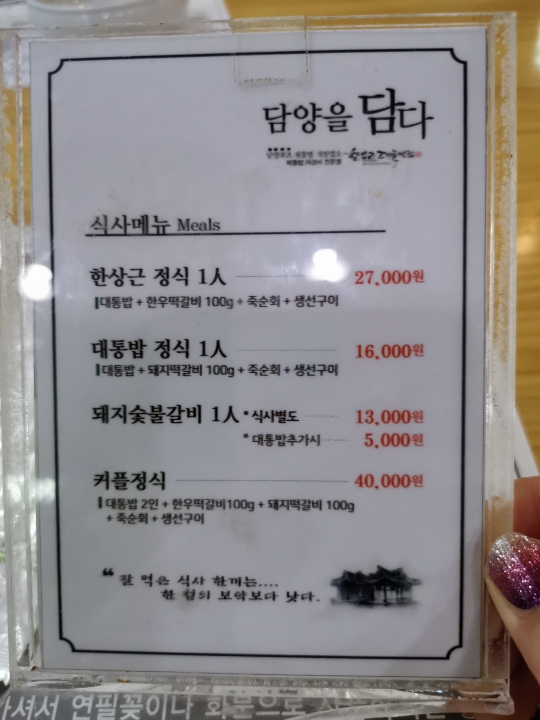 담양을 담다
식사메뉴 Meals
한상근 정식 1人 27,000원
대통밥 + 한우떡갈비 100g + 죽순회 + 생선구이
대통밥 정식 1人 16,000원
대통밥 + 돼지떡갈비 100g + 죽순회 + 생선구이
돼지숯불갈비 1人 *식사별도 13,000원
* 대통밥추가시 5,000원
커플정식 40,000원
대통밥 2인 + 한우떡갈비100g + 돼지떡갈비 100g
+ 죽순회 + 생선구이
“ 잘 먹은 식사 한끼는....
한 첩의 보약보다 낫다.
연필꽂이나 화분으로